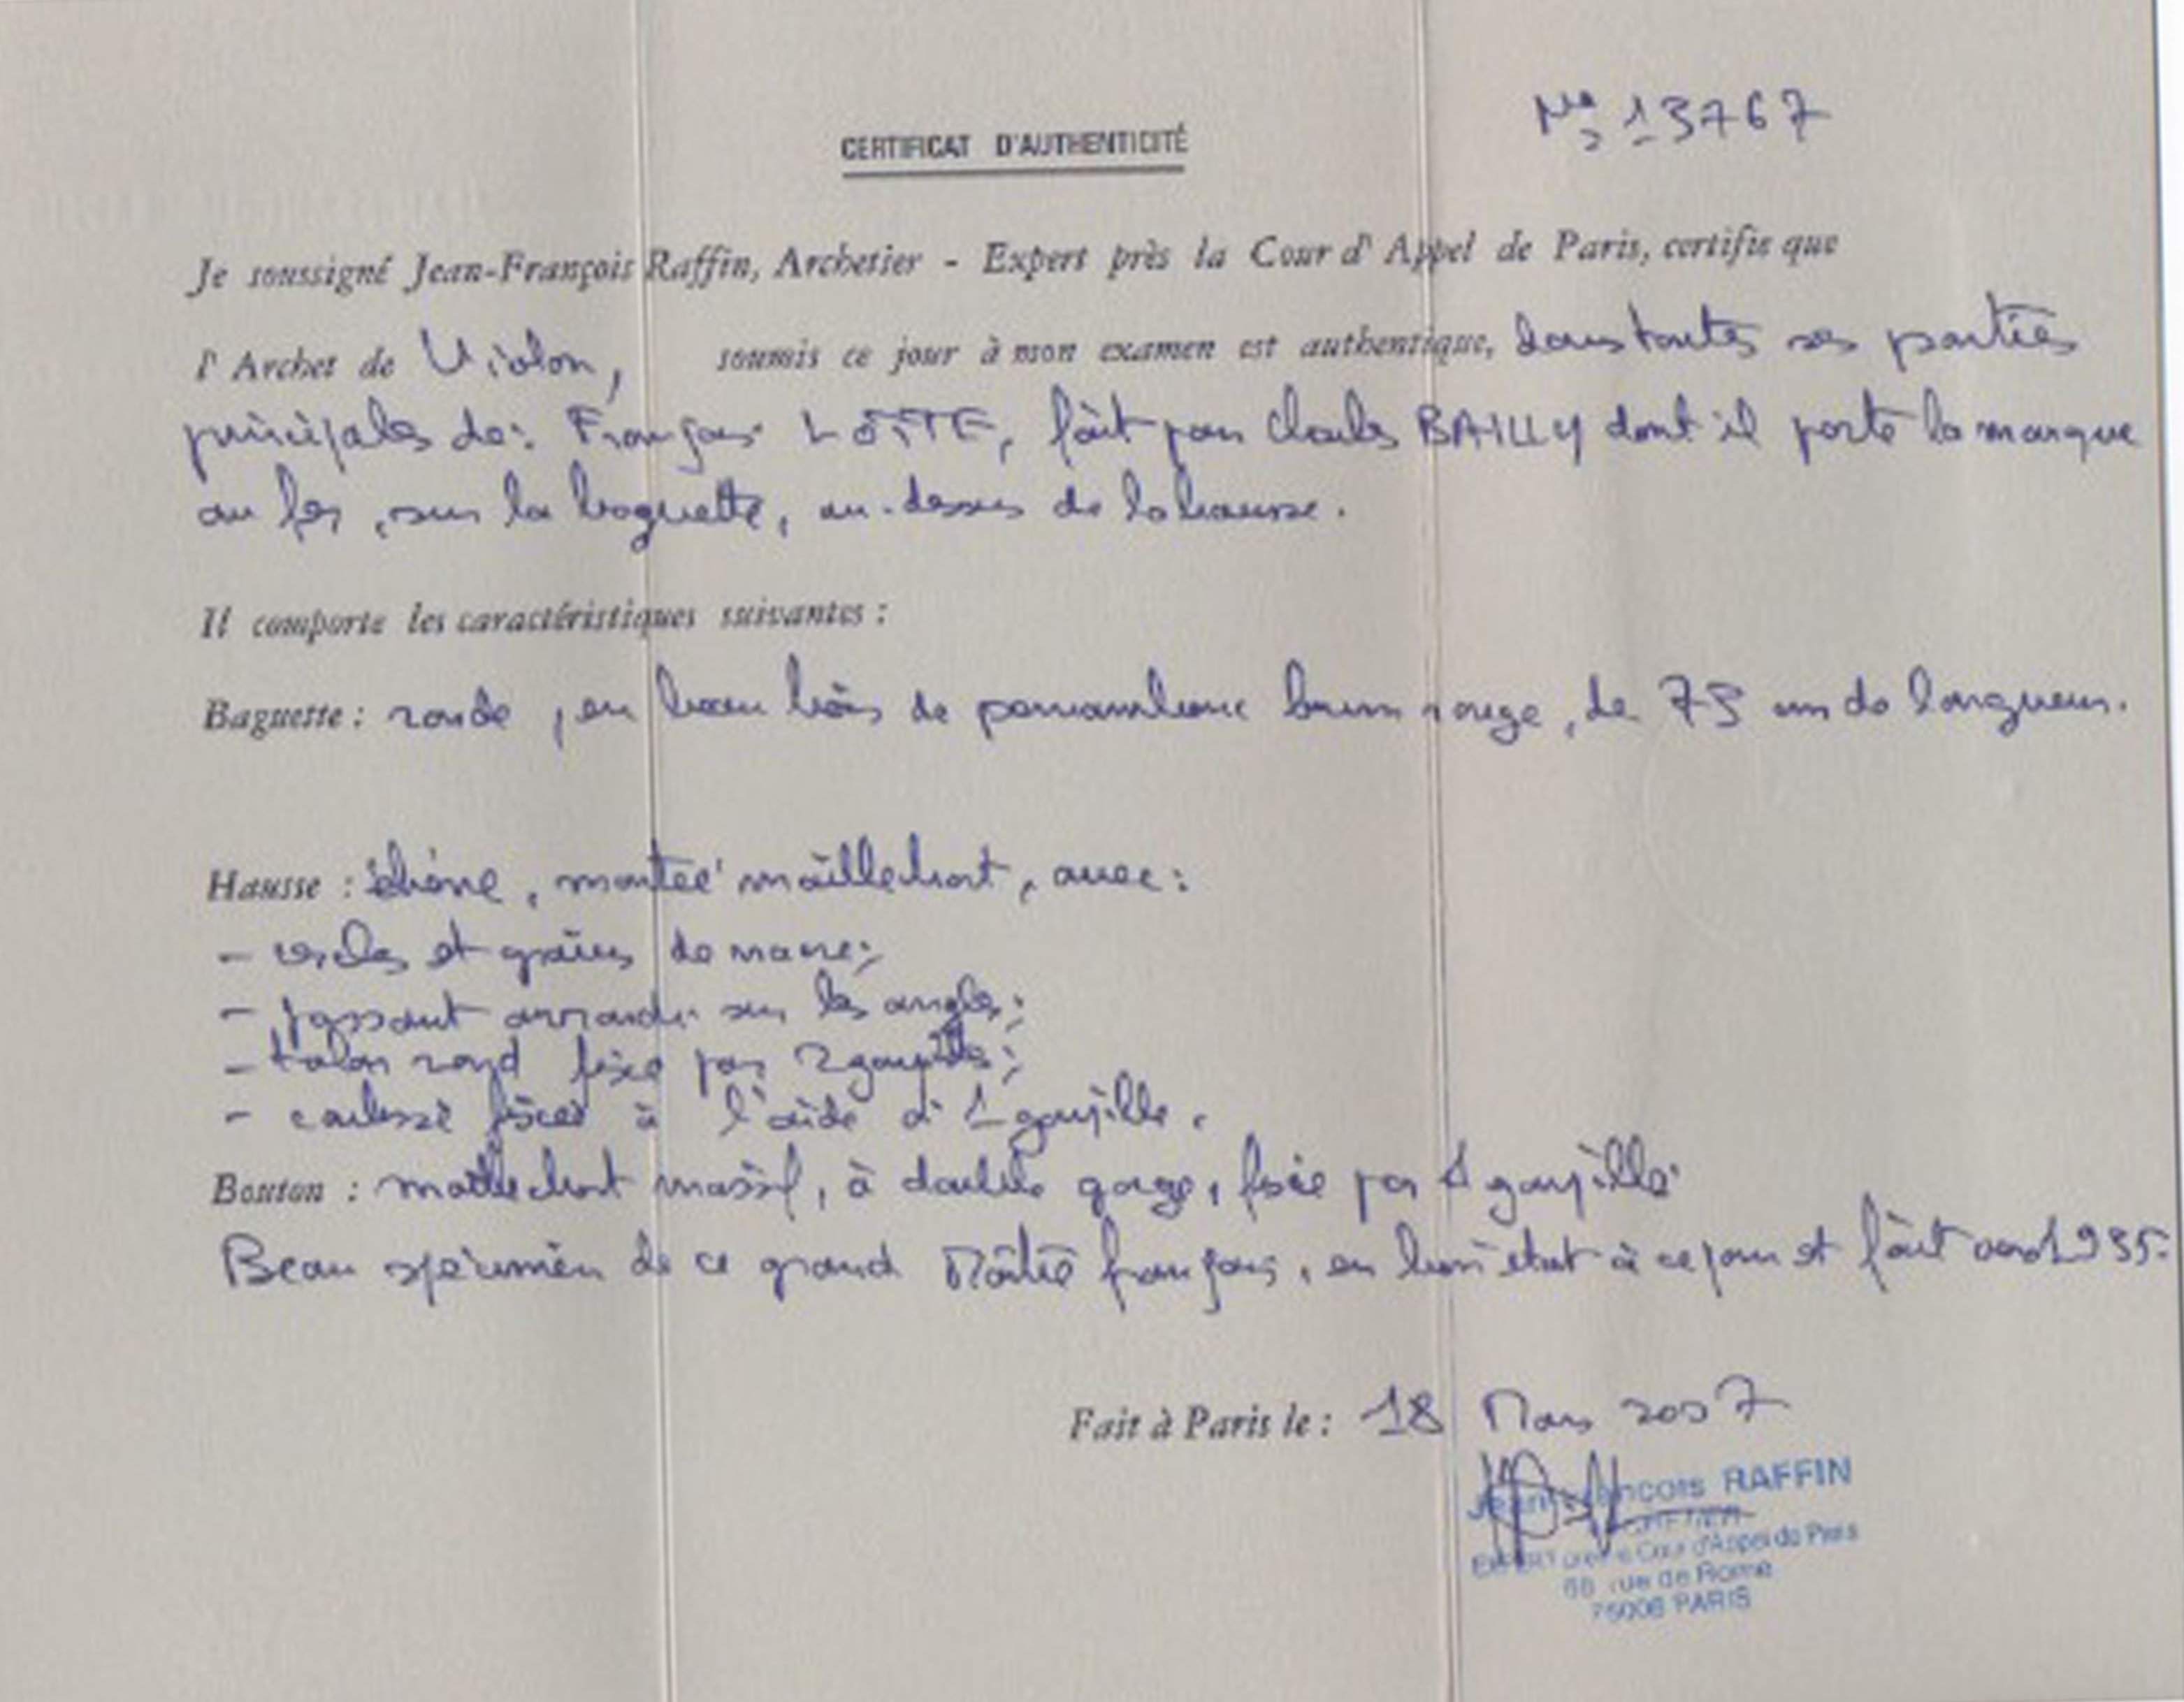 N° 13767
CERTIFICAT D'AUTHENTICITÉ
Je soussigné Jean-François Raffin, Archetier - Expert près la Cour d'Appel de Paris, certifie que
l'Archet de Violon, soumis ce jour à mon examen est authentique, dans toutes ses parties
principales de: François LOTTE, fait pour Charles BAILLY dont il porte la marque
au fer, sur la baguette, au-dessus de la hausse.
Il comporte les caractéristiques suivantes :
Baguette : ronde, en beau bois de pernambouc brun rouge, de 73 cm de longueur.
Hausse : ébène, montée maillechort, avec:
- cercles et grains de nacre;
- passant arrondi sur les angles;
- talon rond fixé par 2 goupilles;
- coulisse fixée à l'aide d'1 goupille.
Bouton : maillechort massif, à double gorge, fixé par 1 goupille
Beau spécimen de ce grand Maître français, en bon état à ce jour et fait vers 1935.
Fait à Paris le : 18 Mars 2007
Jean-François RAFFIN
ARCHETIER
EXPERT près la Cour d'Appel de Paris
68 rue de Rome
75008 PARIS